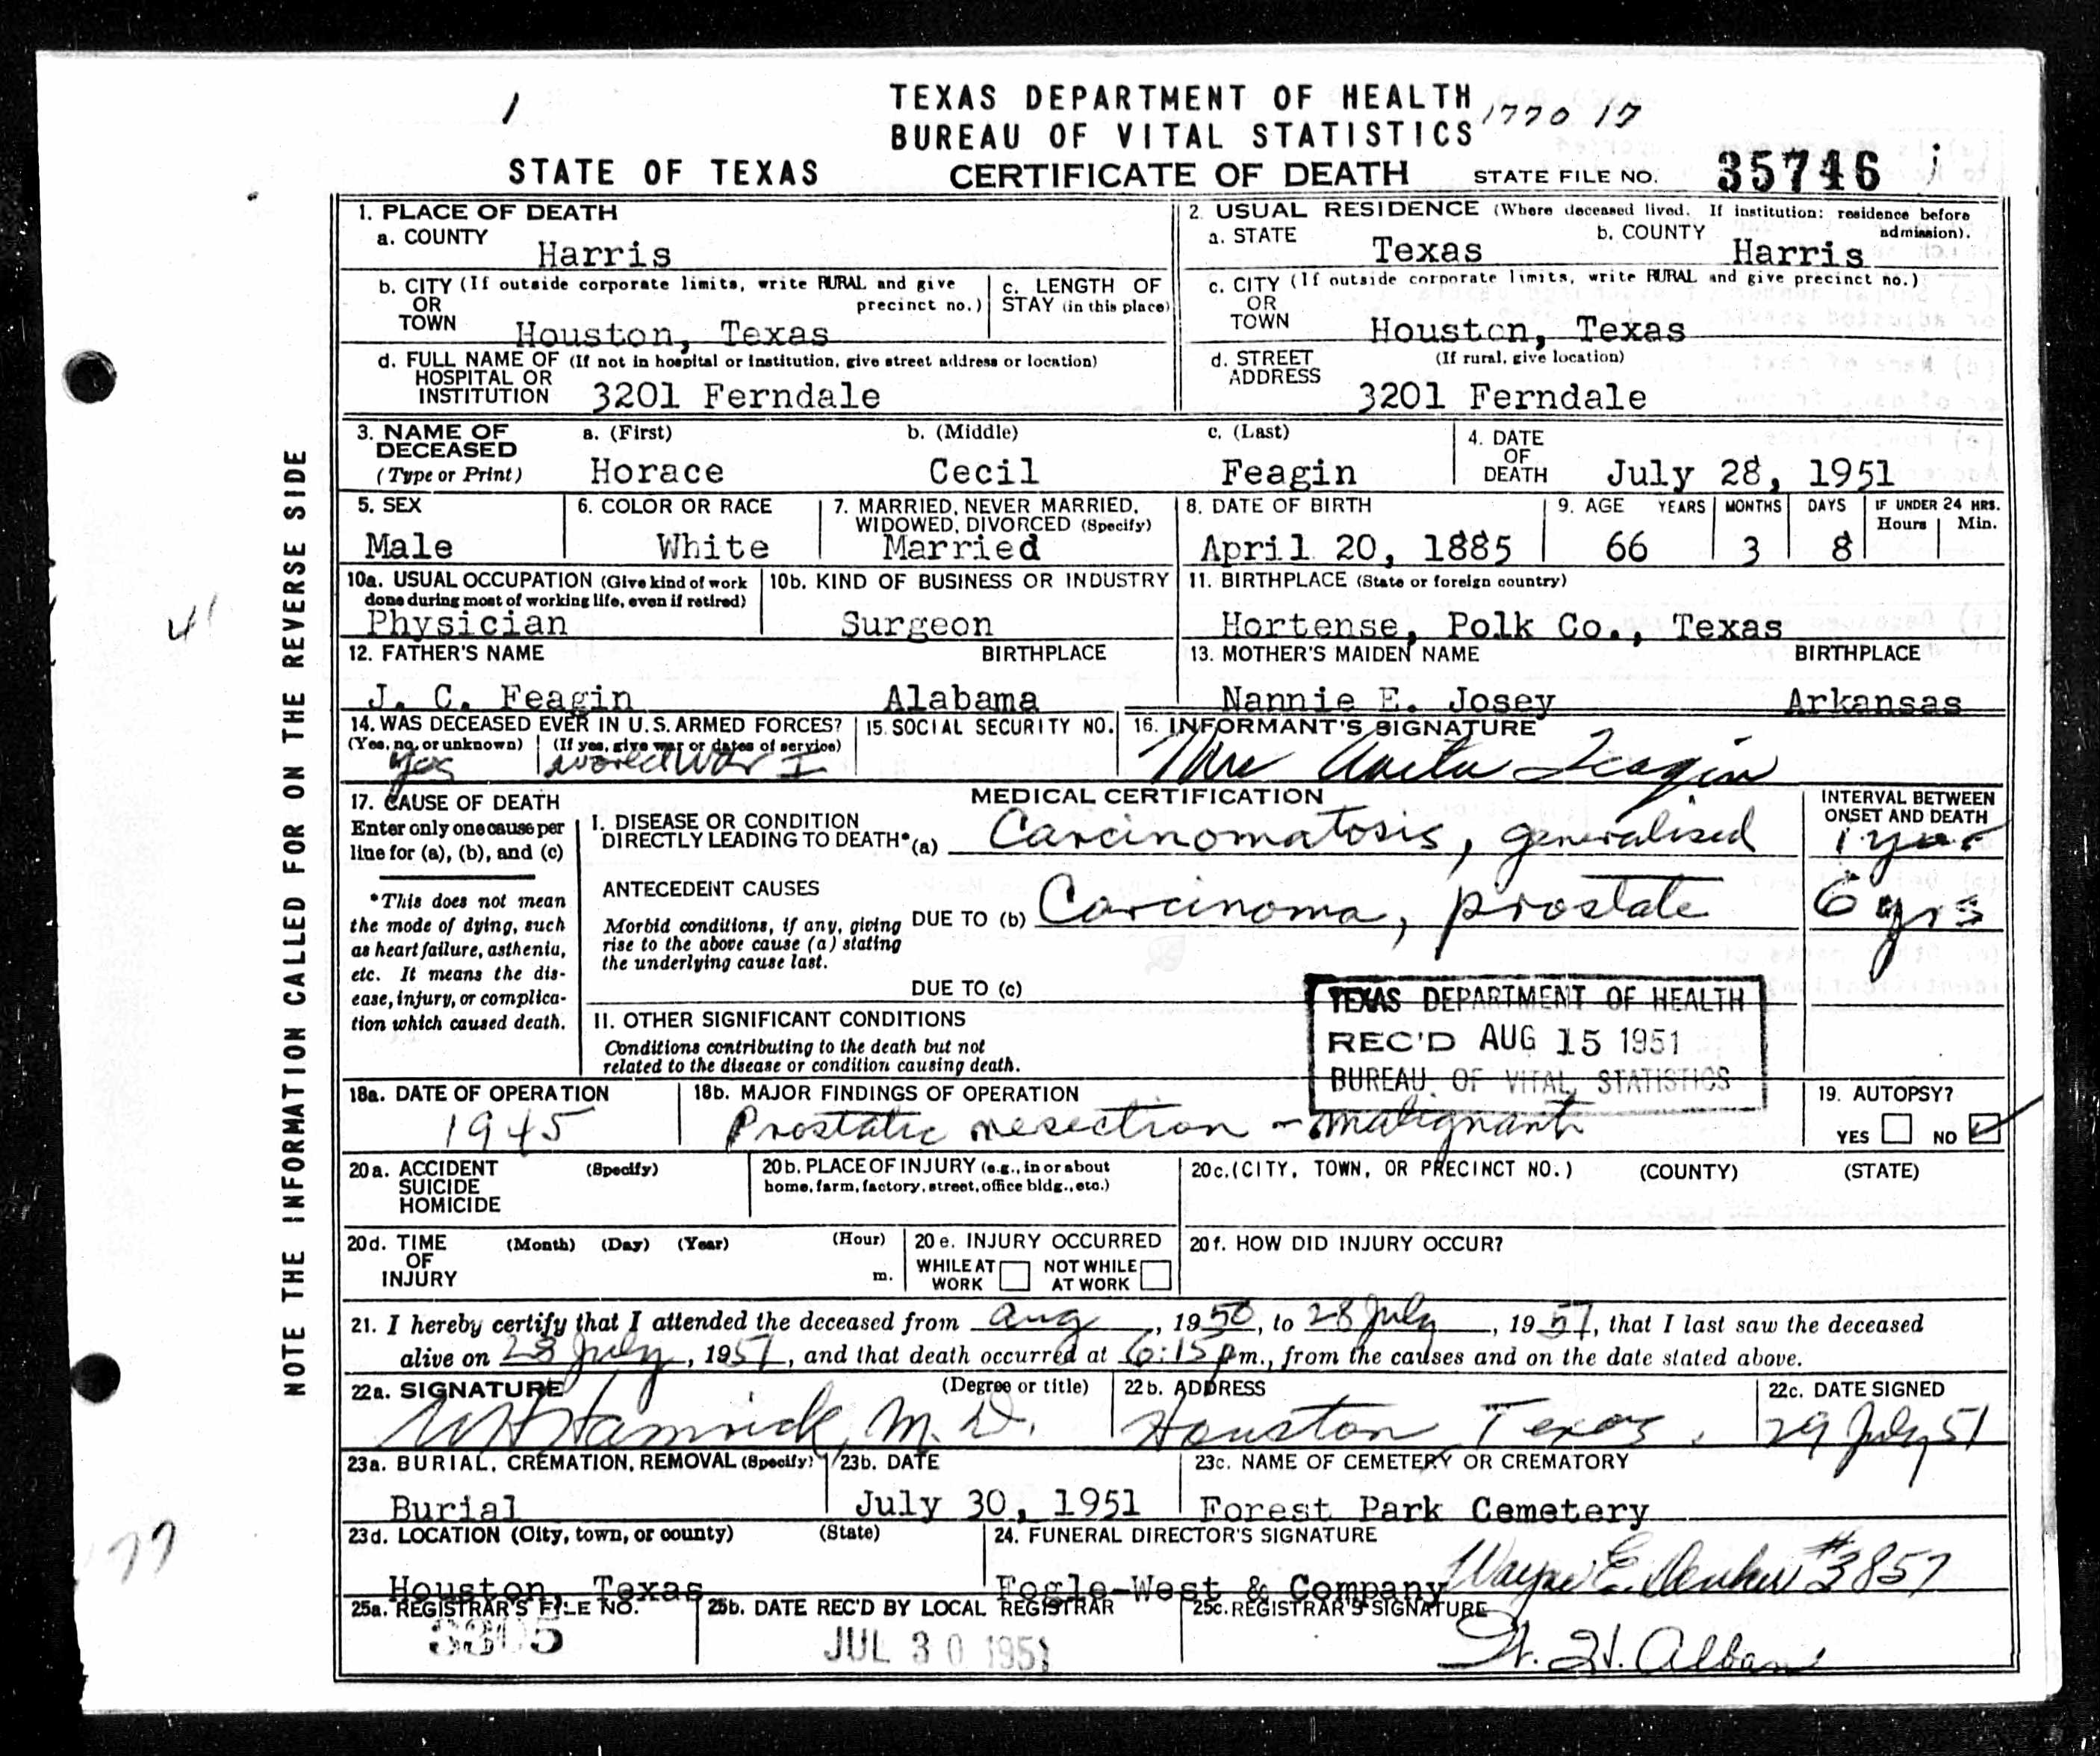 1
TEXAS DEPARTMENT OF HEALTH
BUREAU OF VITAL STATISTICS
1770 17
STATE OF TEXAS
CERTIFICATE OF DEATH
STATE FILE NO. 35746
1. PLACE OF DEATH
a. COUNTY
Harris
b. CITY (If outside corporate limits, write RURAL and give precinct no.)
OR
TOWN
Houston, Texas
c. LENGTH OF
STAY (in this place)
d. FULL NAME OF (If not in hospital or institution, give street address or location)
HOSPITAL OR
INSTITUTION
3201 Ferndale
2. USUAL RESIDENCE (Where deceased lived. If institution: residence before admission).
a. STATE
Texas
b. COUNTY
Harris
c. CITY (If outside corporate limits, write RURAL and give precinct no.)
OR
TOWN
Houston, Texas
d. STREET
ADDRESS
(If rural, give location)
3201 Ferndale
3. NAME OF
DECEASED
(Type or Print)
a. (First)
Horace
b. (Middle)
Cecil
c. (Last)
Feagin
4. DATE
OF
DEATH
July 28, 1951
5. SEX
Male
6. COLOR OR RACE
White
7. MARRIED, NEVER MARRIED,
WIDOWED, DIVORCED (Specify)
Married
8. DATE OF BIRTH
April 20, 1885
9. AGE YEARS MONTHS DAYS IF UNDER 24 HRS.
Hours Min.
66 3 8
10a. USUAL OCCUPATION (Give kind of work
done during most of working life, even if retired)
Physician
10b. KIND OF BUSINESS OR INDUSTRY
Surgeon
11. BIRTHPLACE (State or foreign country)
Hortense, Polk Co., Texas
12. FATHER'S NAME BIRTHPLACE
J. C. Feagin Alabama
13. MOTHER'S MAIDEN NAME BIRTHPLACE
Nannie E. Josey Arkansas
14. WAS DECEASED EVER IN U.S. ARMED FORCES?
(Yes, no, or unknown) (If yes, give war or dates of service)
yes World War I
15. SOCIAL SECURITY NO.
16. INFORMANT'S SIGNATURE
Mrs Anita Feagin
17. CAUSE OF DEATH
Enter only one cause per
line for (a), (b), and (c)
*This does not mean
the mode of dying, such
as heart failure, asthenia,
etc. It means the dis-
ease, injury, or complica-
tion which caused death.
MEDICAL CERTIFICATION
INTERVAL BETWEEN
ONSET AND DEATH
I. DISEASE OR CONDITION
DIRECTLY LEADING TO DEATH* (a) Carcinomatosis, generalised 1 year
ANTECEDENT CAUSES
Morbid conditions, if any, giving
rise to the above cause (a) stating
the underlying cause last.
DUE TO (b) Carcinoma, prostate 6 yrs
DUE TO (c)
II. OTHER SIGNIFICANT CONDITIONS
Conditions contributing to the death but not
related to the disease or condition causing death.
TEXAS DEPARTMENT OF HEALTH
REC'D AUG 15 1951
BUREAU OF VITAL STATISTICS
18a. DATE OF OPERATION
1945
18b. MAJOR FINDINGS OF OPERATION
Prostatic resection - malignant
19. AUTOPSY?
YES NO
20a. ACCIDENT
SUICIDE
HOMICIDE
(Specify)
20b. PLACE OF INJURY (e.g., in or about
home, farm, factory, street, office bldg., etc.)
20c. (CITY, TOWN, OR PRECINCT NO.) (COUNTY) (STATE)
20d. TIME
OF
INJURY
(Month) (Day) (Year) (Hour)
m.
20e. INJURY OCCURRED
WHILE AT
WORK
NOT WHILE
AT WORK
20f. HOW DID INJURY OCCUR?
21. I hereby certify that I attended the deceased from Aug, 1950, to 28 July, 1951, that I last saw the deceased
alive on 28 July, 1951, and that death occurred at 6:15 pm., from the causes and on the date stated above.
22a. SIGNATURE (Degree or title)
Hamrick, M.D.
22b. ADDRESS
Houston Texas.
22c. DATE SIGNED
29 July 51
23a. BURIAL, CREMATION, REMOVAL (Specify)
Burial
23b. DATE
July 30, 1951
23c. NAME OF CEMETERY OR CREMATORY
Forest Park Cemetery
23d. LOCATION (City, town, or county) (State)
Houston, Texas
24. FUNERAL DIRECTOR'S SIGNATURE
Fogle-West & Company Wayne E. #3857
25a. REGISTRAR'S FILE NO.
3305
25b. DATE REC'D BY LOCAL REGISTRAR
JUL 30 1951
25c. REGISTRAR'S SIGNATURE
H. Alban
NOTE THE INFORMATION CALLED FOR ON THE REVERSE SIDE
41
77